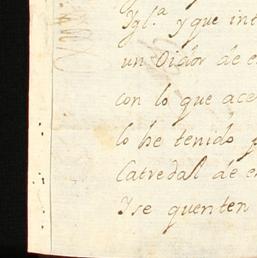 Ygl.ª y que int
un Oidór de e
con lo que ace
lo he tenido p
Catredal de e
Y se quenten